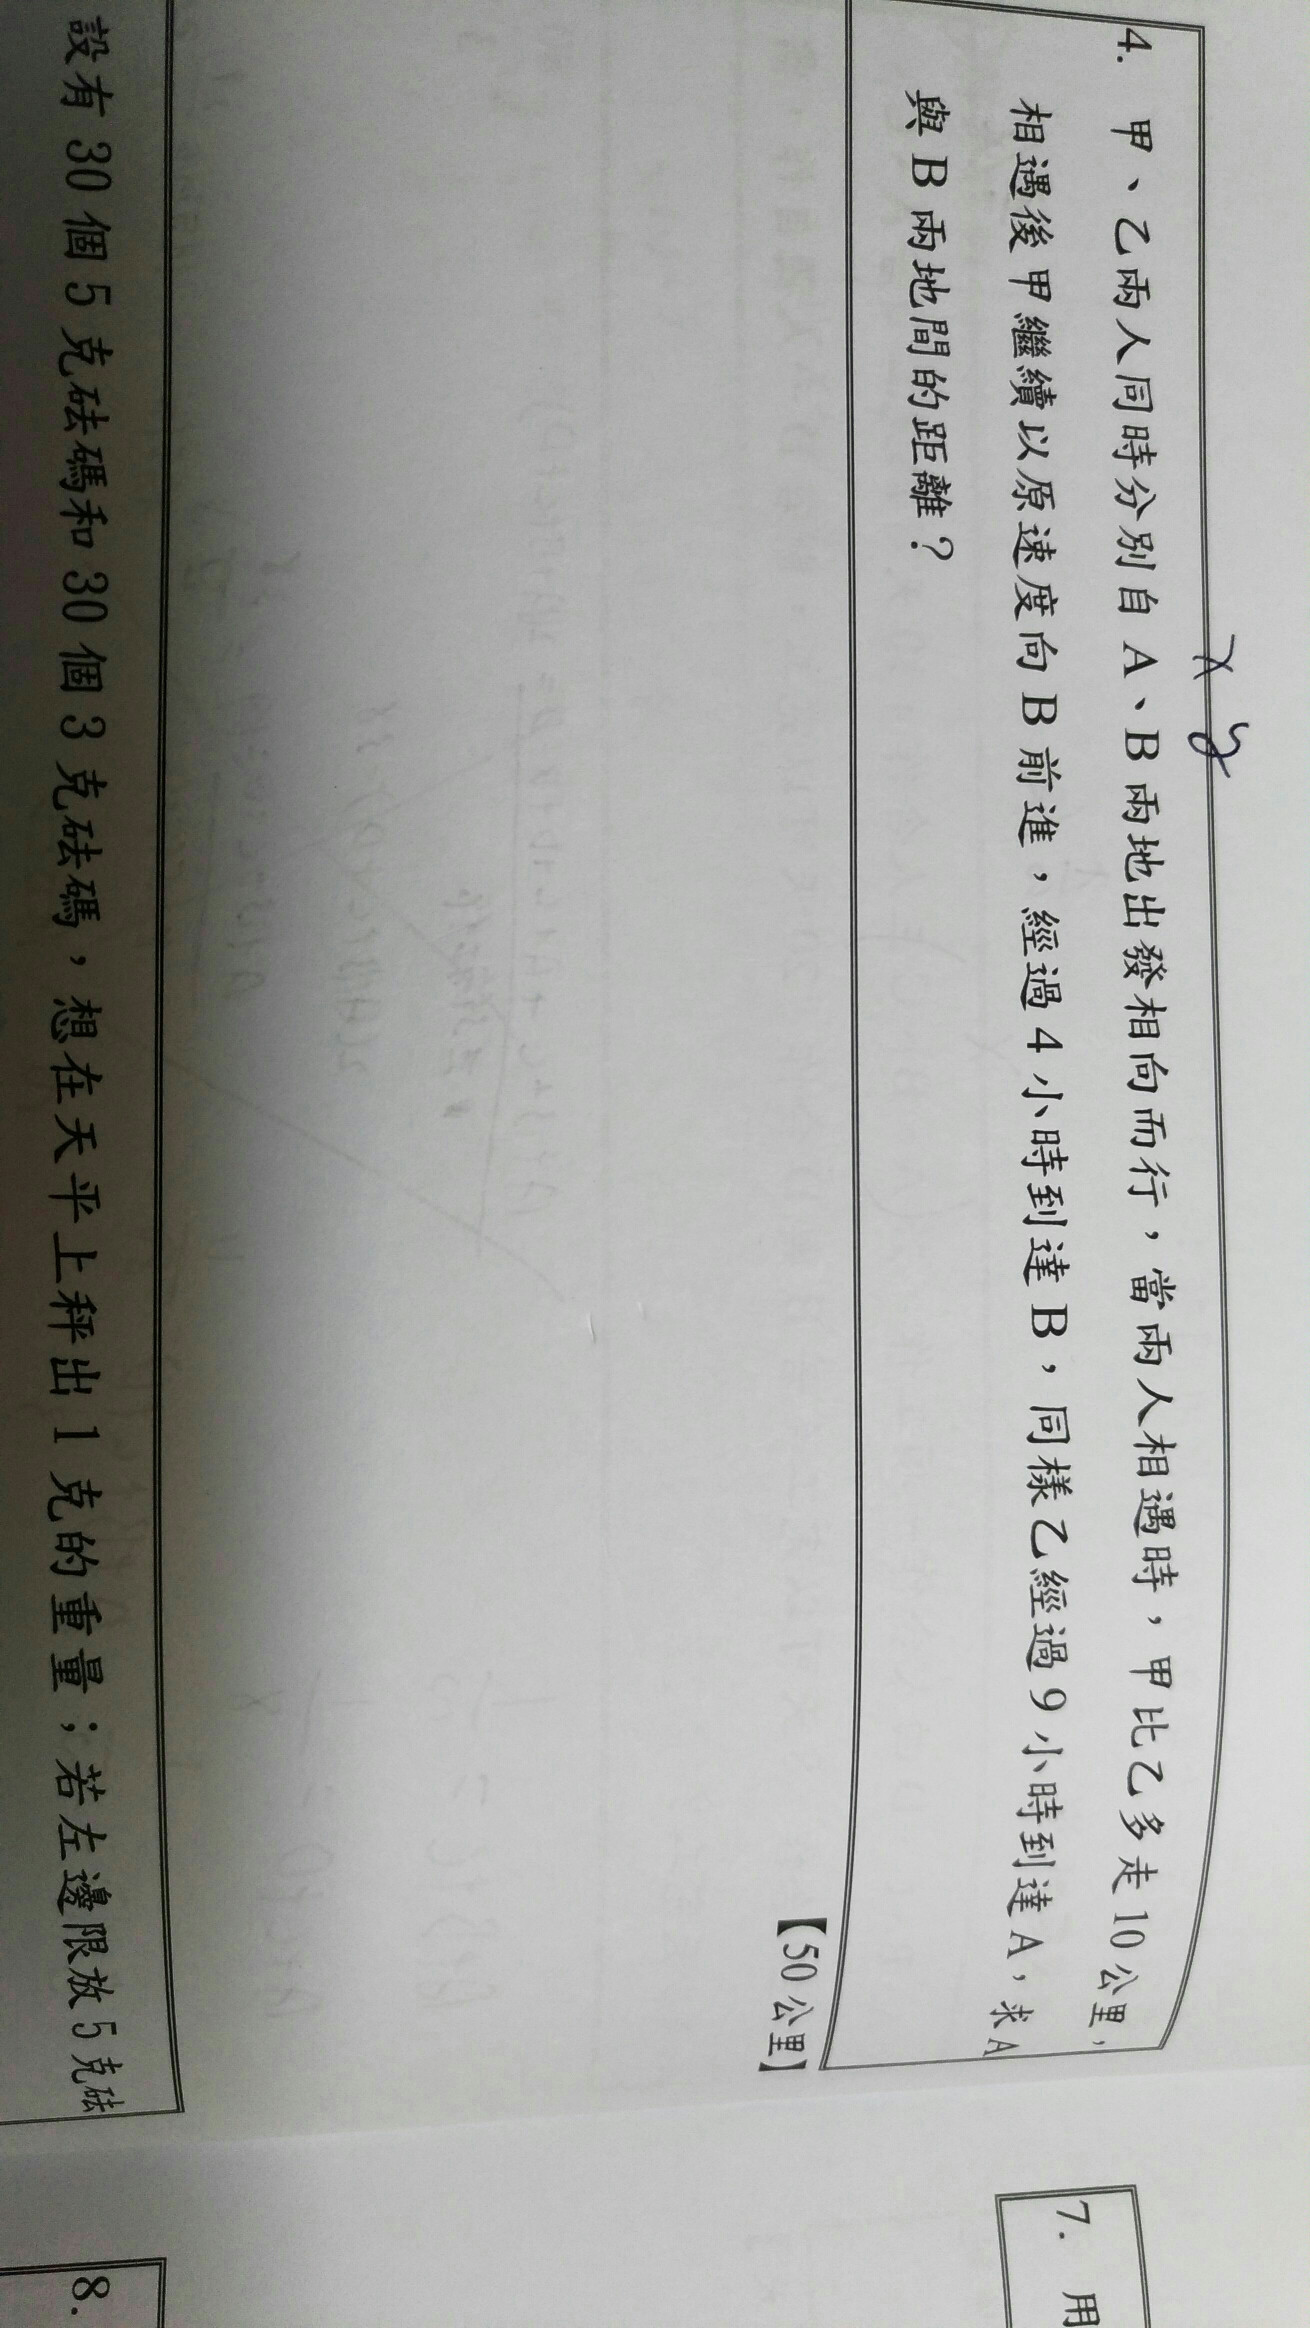 x y
4. 甲、乙兩人同時分別自 A、B 兩地出發相向而行，當兩人相遇時，甲比乙多走 10 公里，
相遇後甲繼續以原速度向 B 前進，經過 4 小時到達 B，同樣乙經過 9 小時到達 A，求 A
與 B 兩地間的距離？
【50 公里】
設有 30 個 5 克砝碼和 30 個 3 克砝碼，想在天平上秤出 1 克的重量；若左邊限放 5 克砝
7. 用
8.